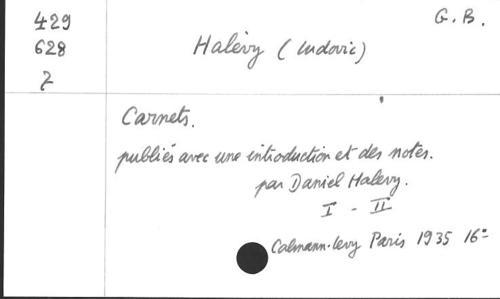 429
G. B.
628
Halévy (Ludovic)
Z
Carnets.
publiés avec une introduction et des notes.
par Daniel Halévy.
I - II
Calmann-Levy Paris 1935 16°